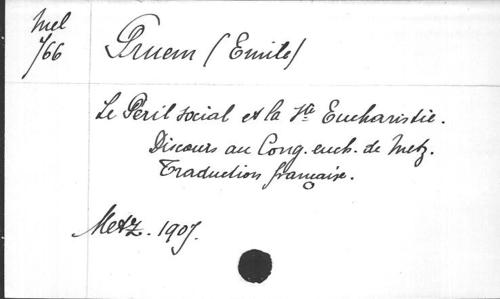 Mel
766
Pruem (Emile)
Le Péril social et la Ste Eucharistie.
Discours au Cong. euch. de Metz.
Traduction française.
Metz. 1907.